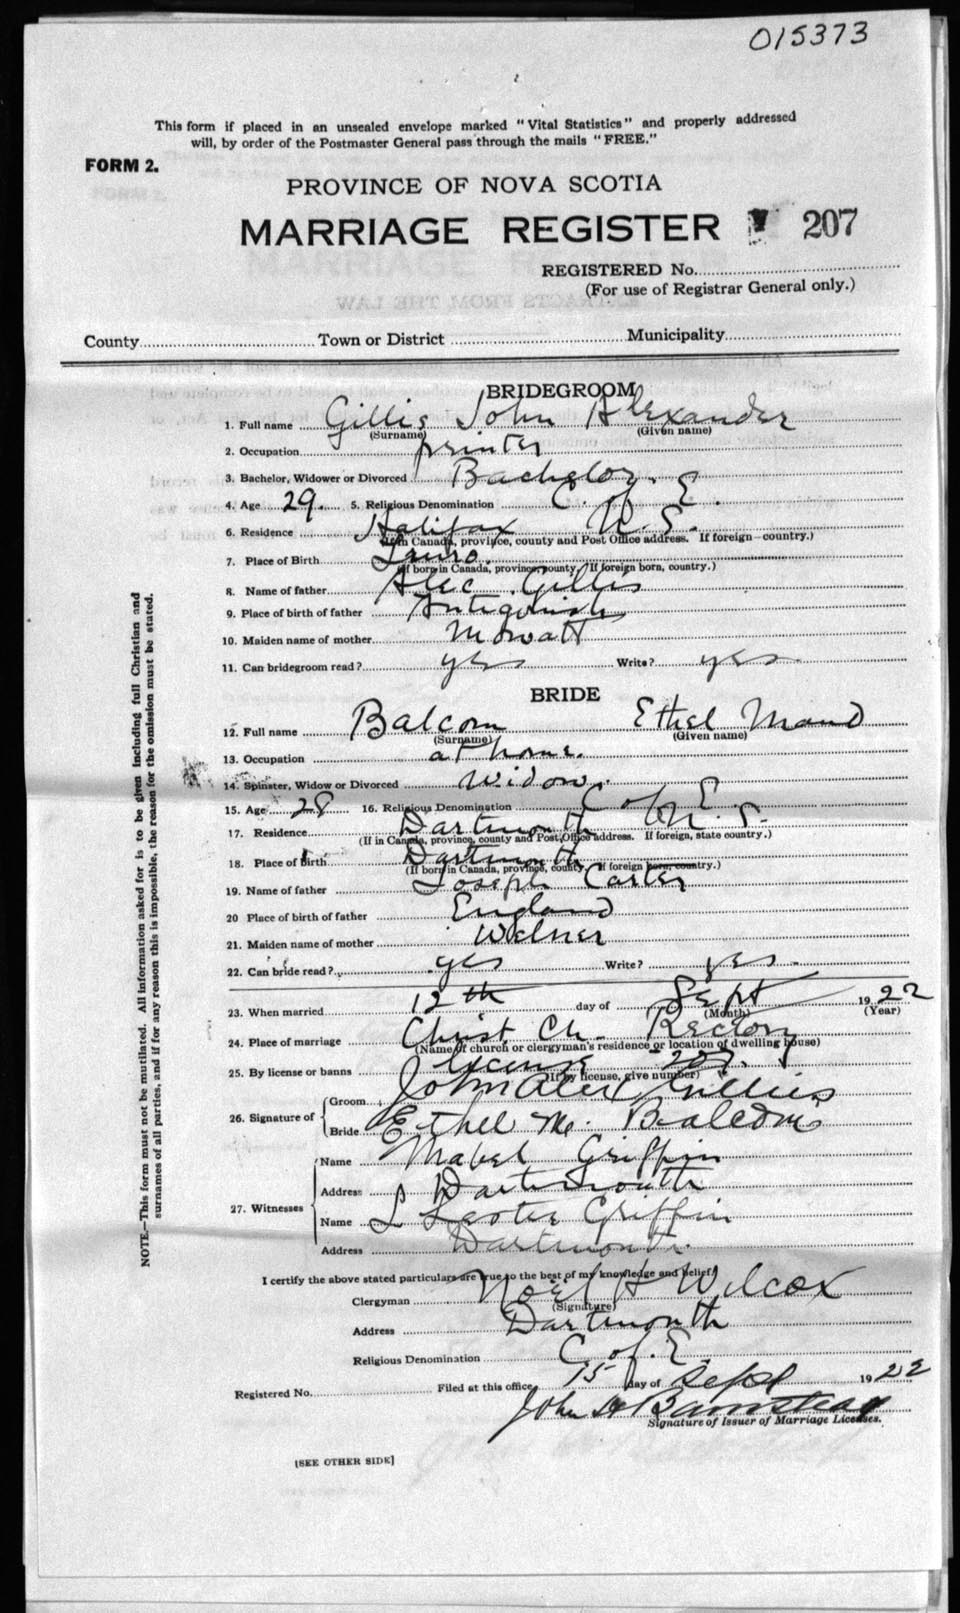 015373
This form if placed in an unsealed envelope marked "Vital Statistics" and properly addressed
will, by order of the Postmaster General pass through the mails "FREE."
FORM 2.
PROVINCE OF NOVA SCOTIA
MARRIAGE REGISTER 207
REGISTERED No.
(For use of Registrar General only.)
County Town or District Municipality
BRIDEGROOM
1. Full name Gillis John Alexander
(Surname) (Given name)
2. Occupation printer
3. Bachelor, Widower or Divorced Bachelor.
4. Age 29. 5. Religious Denomination C. of E.
6. Residence Halifax N. S.
(If in Canada, province, county and Post Office address. If foreign country.)
7. Place of Birth
(If born in Canada, province, county. If foreign born, country.)
8. Name of father Alec Gillis
9. Place of birth of father Antigonish
10. Maiden name of mother Mowatt
11. Can bridegroom read? yes Write? yes
BRIDE
12. Full name Balcom Ethel Maud
(Surname) (Given name)
13. Occupation at home.
14. Spinster, Widow or Divorced Widow.
15. Age 28 16. Religious Denomination C of E
17. Residence Dartmouth N. S.
(If in Canada, province, county and Post Office address. If foreign, state country.)
18. Place of Birth Dartmouth
(If born in Canada, province, county. If foreign born country.)
19. Name of father Joseph Carter
20 Place of birth of father England
21. Maiden name of mother
22. Can bride read? yes Write? yes.
23. When married 12th day of Sept 1922
(Month) (Year)
24. Place of marriage Christ Ch. Rectory
(Name of church or clergyman's residence or location of dwelling house)
25. By license or banns license - 207.
(If by license, give number)
26. Signature of Groom John Alex Gillies
Bride Ethel M. Balcom
27. Witnesses Name Mabel Griffin
Address Dartmouth
Name L Lester Griffin
Address Dartmouth.
I certify the above stated particulars are true to the best of my knowledge and belief.
Clergyman Noel H Wilcox
(Signature)
Address Dartmouth
Religious Denomination C. of. E.
Registered No. Filed at this office 15 day of Sept 1922
John
Signature of Issuer of Marriage Licenses.
[SEE OTHER SIDE]
NOTE.—This form must not be mutilated. All information asked for is to be given including full Christian and
surnames of all parties, and if for any reason this is impossible, the reason for the omission must be stated.